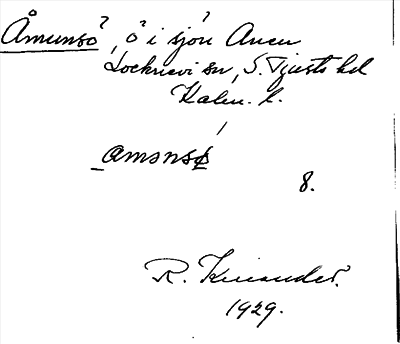 Åmunsö?, ö i sjön Ären?
Locknevi sn, S. Tjusts hd
Kalm. l.
amənsø
8.
R. Kinander.
1929.